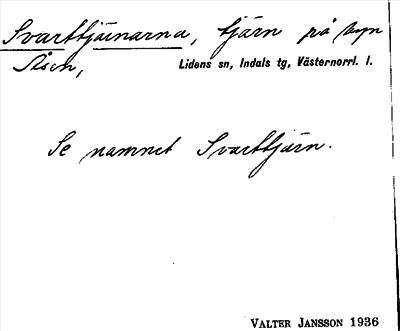 Svarttjärnarna, tjärn på byn
Åsen,
Lidens sn, Indals tg, Västernorrl. l.
Se namnet Svarttjärn.
VALTER JANSSON 1936